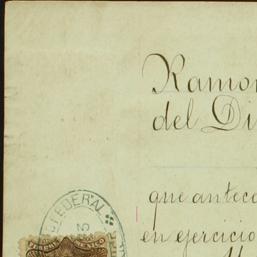 Ramon
del Di
que anteced
en ejercicio
FEDERAL
MEXICO